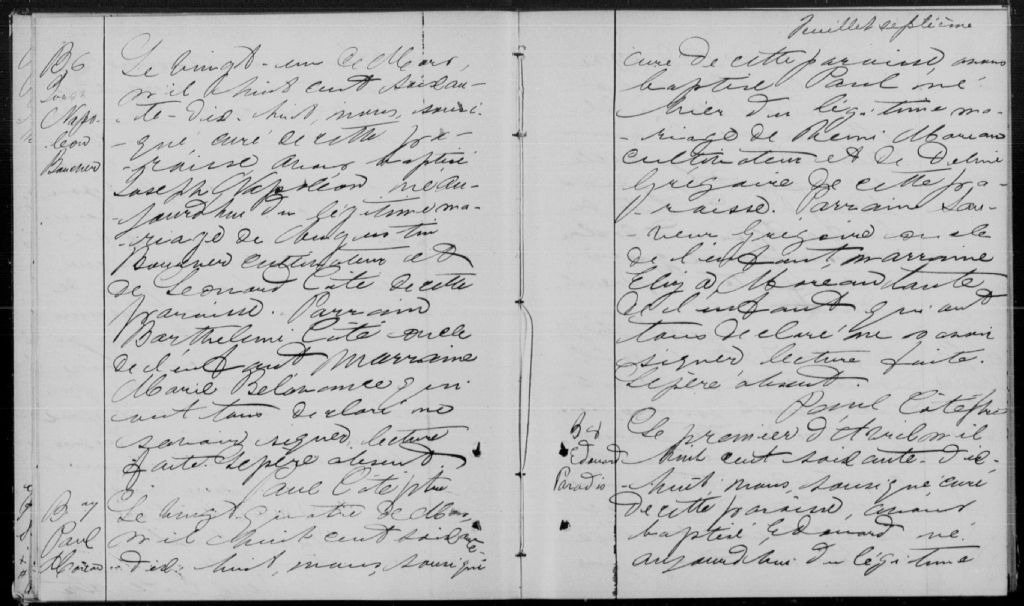 B 6
Joseph
Napo-
léon
Boucher
Le vingt-un de Mars,
mil huit cent soixan-
-te-dix-huit, nous, soussi-
-gné, curé de cette pa-
-roisse avons baptisé
Joseph Napoléon, né au-
-jourd'hui du légitime ma-
-riage de Augustin
Boucher cultivateur et
de Léonard Coté de cette
paroisse. Parrain
Barthelemi Coté oncle
de l'enfant marraine
Marie qui
ont tous déclaré ne
savoir signer lecture
faite. Le père absent
Paul Coté ptre
B 7
Paul
Moreau
Le vingt quatre de Mars,
mil huit cent soixante-
-dix-huit, nous, soussigné
Feuillet septième
curé de cette paroisse, avons
baptisé Paul né
hier du légitime ma-
-riage de Rémi Moreau
cultivateur et de Delini
Grégoire de cette pa-
-roisse. Parrain Sau-
-veur Grégoire oncle
de l'enfant, marraine
Eliza Moreau tante
de l'enfant qui ont
tous déclaré ne savoir
signer lecture faite.
Le père absent.
Paul Coté ptre
B 8
Edouard
Paradis
Le premier d'Avril mil
huit cent soixante-dix-
-huit nous, soussigné curé
de cette paroisse, avons
baptisé Edouard né
aujourd'hui du légitime